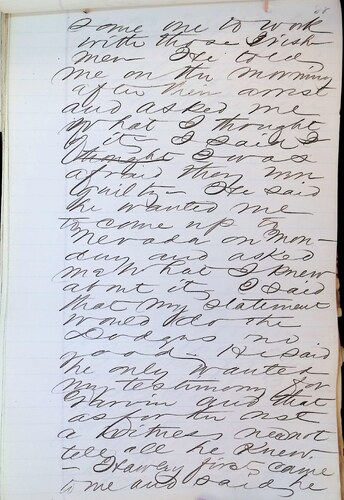 68
some one to work
with those Irish
men He told
me on the morning
after their arrest
and asked me
what I thought
of it, I said I
thought I was
afraid they were
guilty. He said
he wanted me
to come up to
Nevada on Mon-
day and asked
me what I knew
about it, I said
that my statement
would do the
Dodges no
good. He said
he only wanted
my testimony for
and that
as for the rest
a Witness need not
tell all he knew.
- Hawley first came
to me and said he